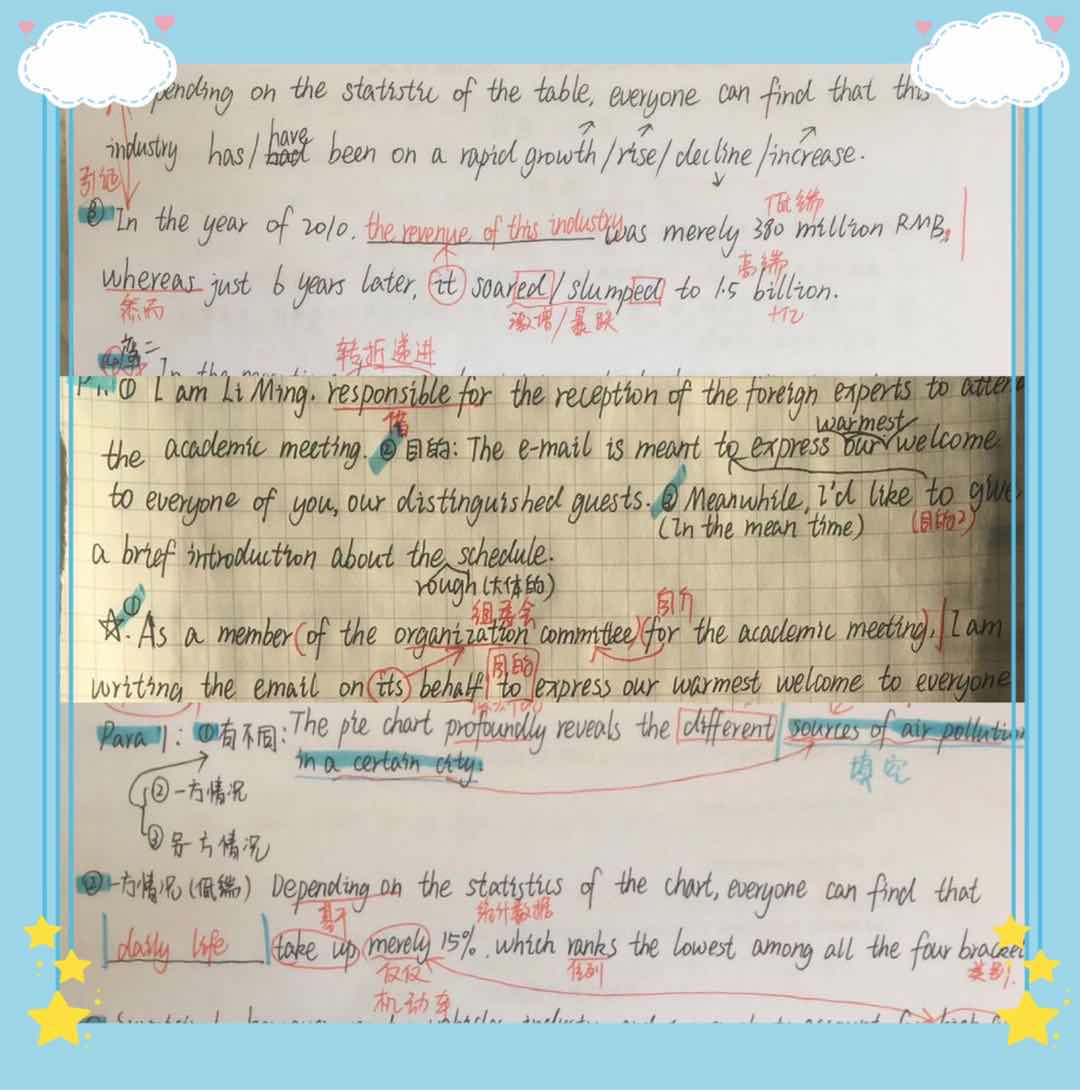 pending on the statistic of the table, everyone can find that this
industry has/have been on a rapid growth/rise/decline/increase.
③ In the year of 2010. the revenue of this industry was merely 380 million RMB,
低端
高端
whereas just 6 years later, it soared/slumped to 1.5 billion.
然而
激增/暴跌
十亿
第二
转折递进
① I am Li Ming. responsible for the reception of the foreign experts to atten
warmest
the academic meeting. ② 目的: The e-mail is meant to express our welcome
to everyone of you, our distinguished guests. ③ Meanwhile, I'd like to give
(In the mean time)
(目的2)
a brief introduction about the schedule.
rough (大体的)
组委会
自介
☆① As a member (of the organization committee) (for the academic meeting), I am
目的
writing the email on its behalf to express our warmest welcome to everyone
Para 1: ①有不同: The pie chart profoundly reveals the different sources of air pollution
in a certain city.
填空
②一方情况
③另一方情况
②一方情况(低端) Depending on the statistics of the chart, everyone can find that
基于
统计数据
daily life take up merely 15%. which ranks the lowest among all the four bracket
仅仅
位列
类别
机动车